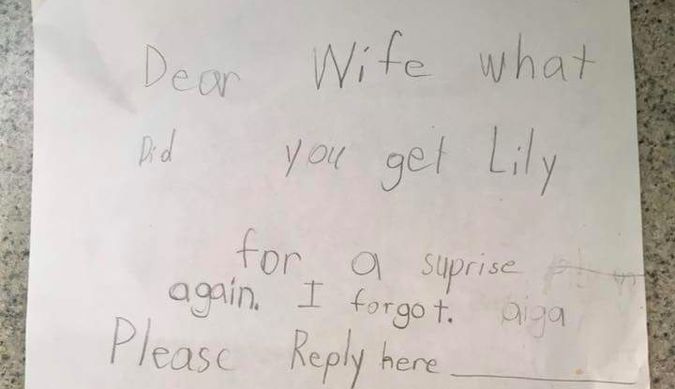 Dear Wife what
Did you get Lily
for a suprise
again. I forgot. aiga
Please Reply here